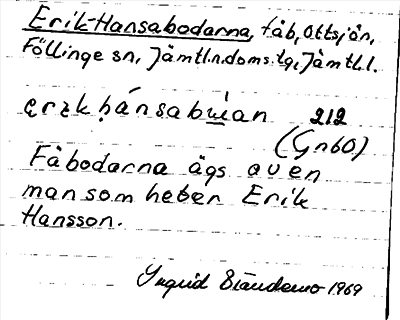 Erik-Hansabodarna, fäb, Ottsjön,
Föllinge sn, Jämtl.n.doms.lg, Jämtl.l.
212
(Gn60)
Fäbodarna ägs av en
man som heter Erik
Hansson.
Ingrid 1969